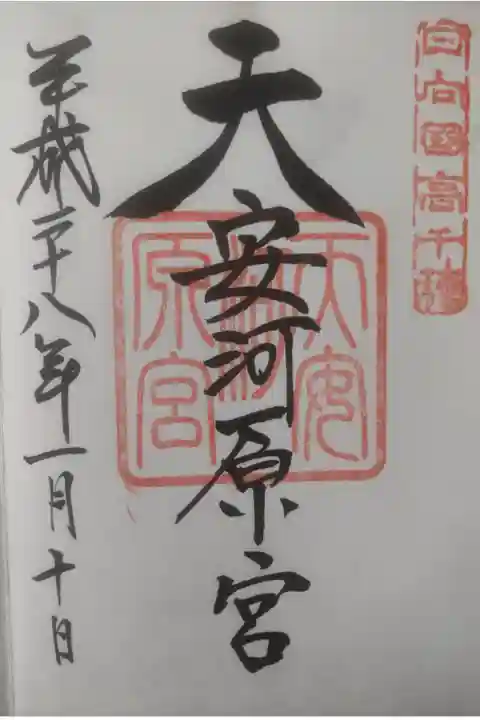 日向國高千穂
天安河原宮
天安河原宮
平成二十八年一月十日